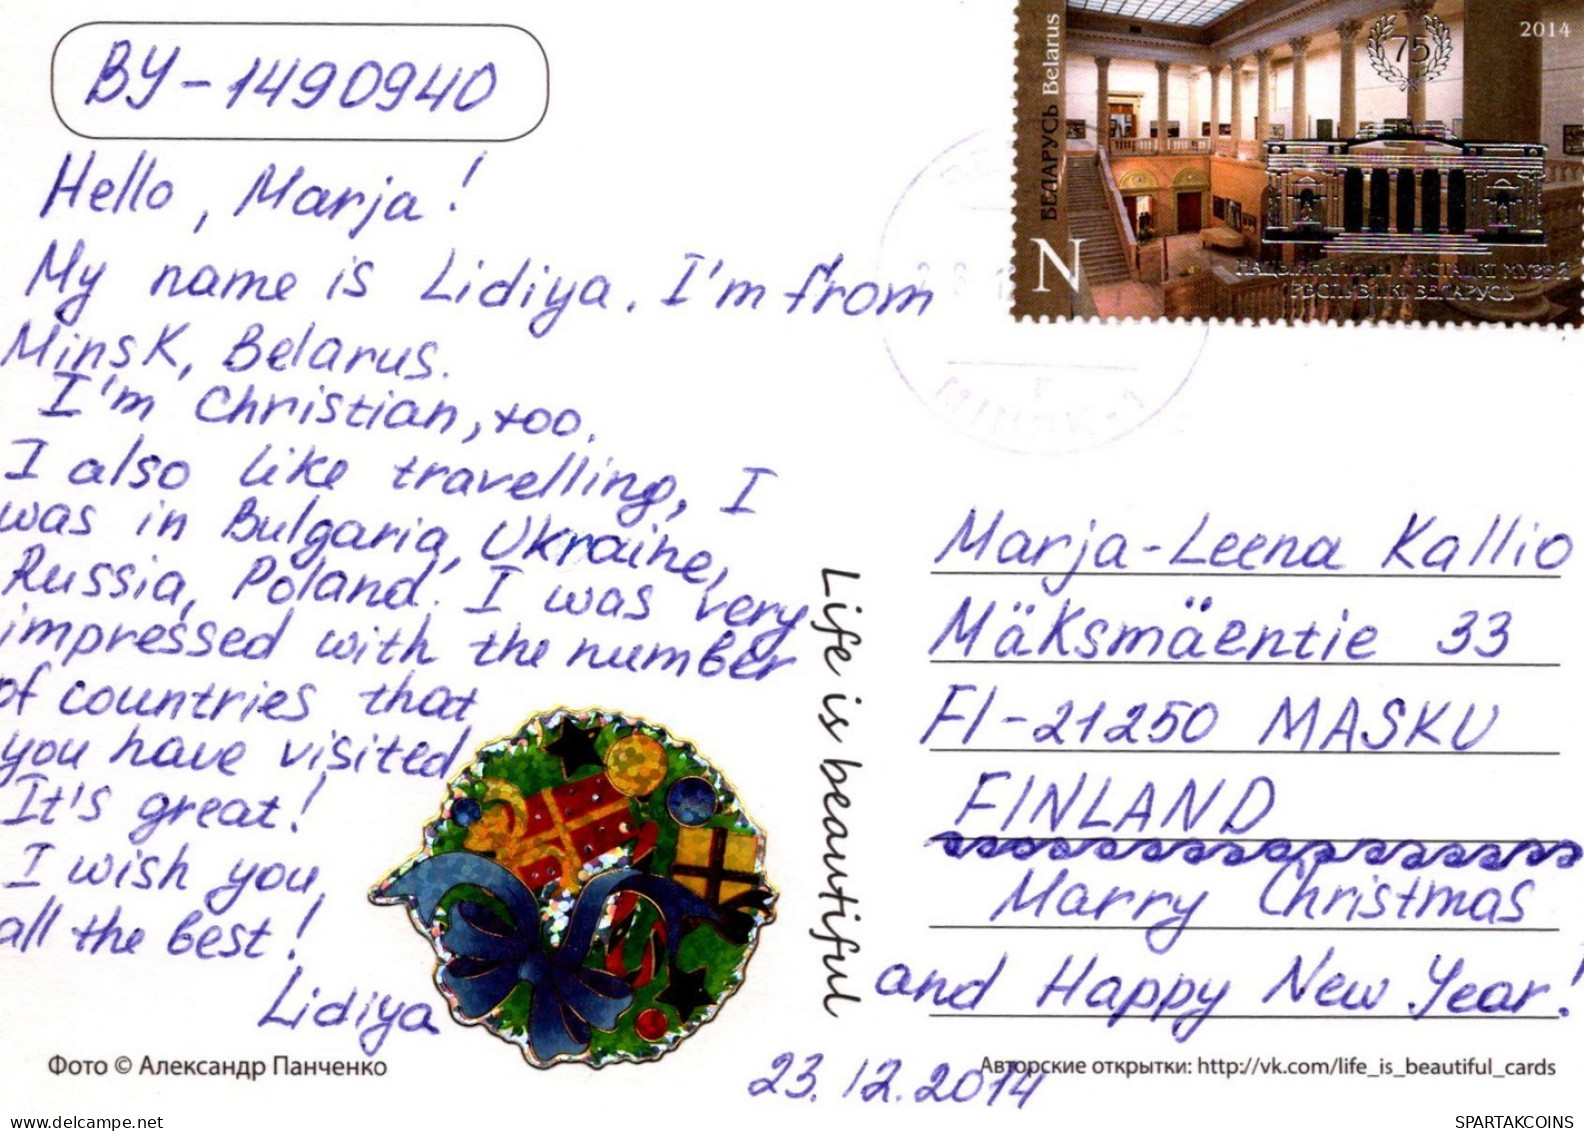 BY-1490940
Hello, Marja!
My name is Lidiya. I'm from
Minsk, Belarus.
I'm Christian, too.
I also like travelling, I
was in Bulgaria, Ukraine,
Russia, Poland. I was very
impressed with the number
of countries that
you have visited
It's great!
I wish you,
all the best!
Lidiya
Фото © Александр Панченко
Life is beautiful
БЕЛАРУСЬ Belarus
2014
75
N
НАЦЫЯНАЛЬНЫ МАСТАЦКІ МУЗЕЙ
РЭСПУБЛІКІ БЕЛАРУСЬ
Marja-Leena Kallio
Mäksmäentie 33
FI-21250 MASKU
FINLAND
Marry Christmas
and Happy New Year!
23.12.2014
Авторские открытки: http://vk.com/life_is_beautiful_cards
SPARTAKCOINS